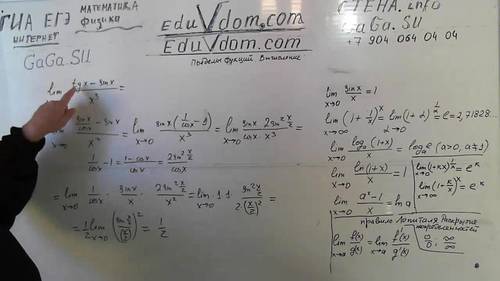 ГИА ЕГЭ
МАТЕМАТИКА
физика
ИНТЕРНЕТ
GaGa.SU
EduVdom.com
EduVdom.com
Пределы функций. Вычисление
СТЕНА.info
GaGa.SU
+7 904 064 04 04
lim tgx - sinx / x³ =
x→0
sinx/cosx - sinx / x³ = lim x→0 sinx(1/cosx - 1) / x³ = lim x→0 sinx 2sin² x/2 / cosx · x³ =
1/cosx - 1 = 1-cosx / cosx = 2sin² x/2 / cosx
= lim x→0 1/cosx · sinx/x · 2sin² x/2 / x² = lim x→0 1·1· sin² x/2 / 2(x/2)² =
= 1/2 lim x→0 (sin x/2 / (x/2))² = 1/2
lim x→0 sinx/x = 1
lim x→∞ (1+1/x)ˣ = lim α→0 (1+α)^(1/α) = e = 2,71828...
lim x→0 logₐ(1+x) / x = logₐe (a>0, a≠1)
lim x→0 ln(1+x) / x = 1
lim x→0 (1+kx)^(1/x) = eᵏ
lim x→0 aˣ-1 / x = ln a
lim x→∞ (1+k/x)ˣ = eᵏ
правило Лопиталя. Раскрытие
неопределенностей
lim x→a f(x)/g(x) = lim x→a f'(x)/g'(x)
0/0, ∞/∞